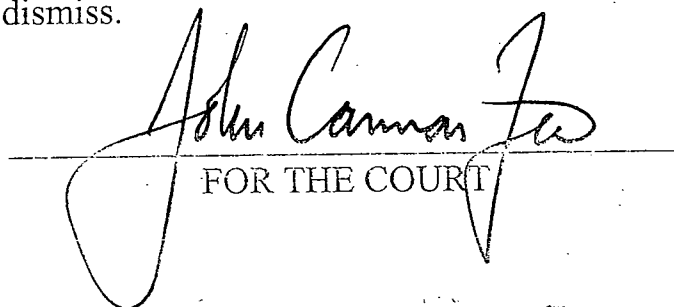 dismiss.
John Cannon Few
FOR THE COURT